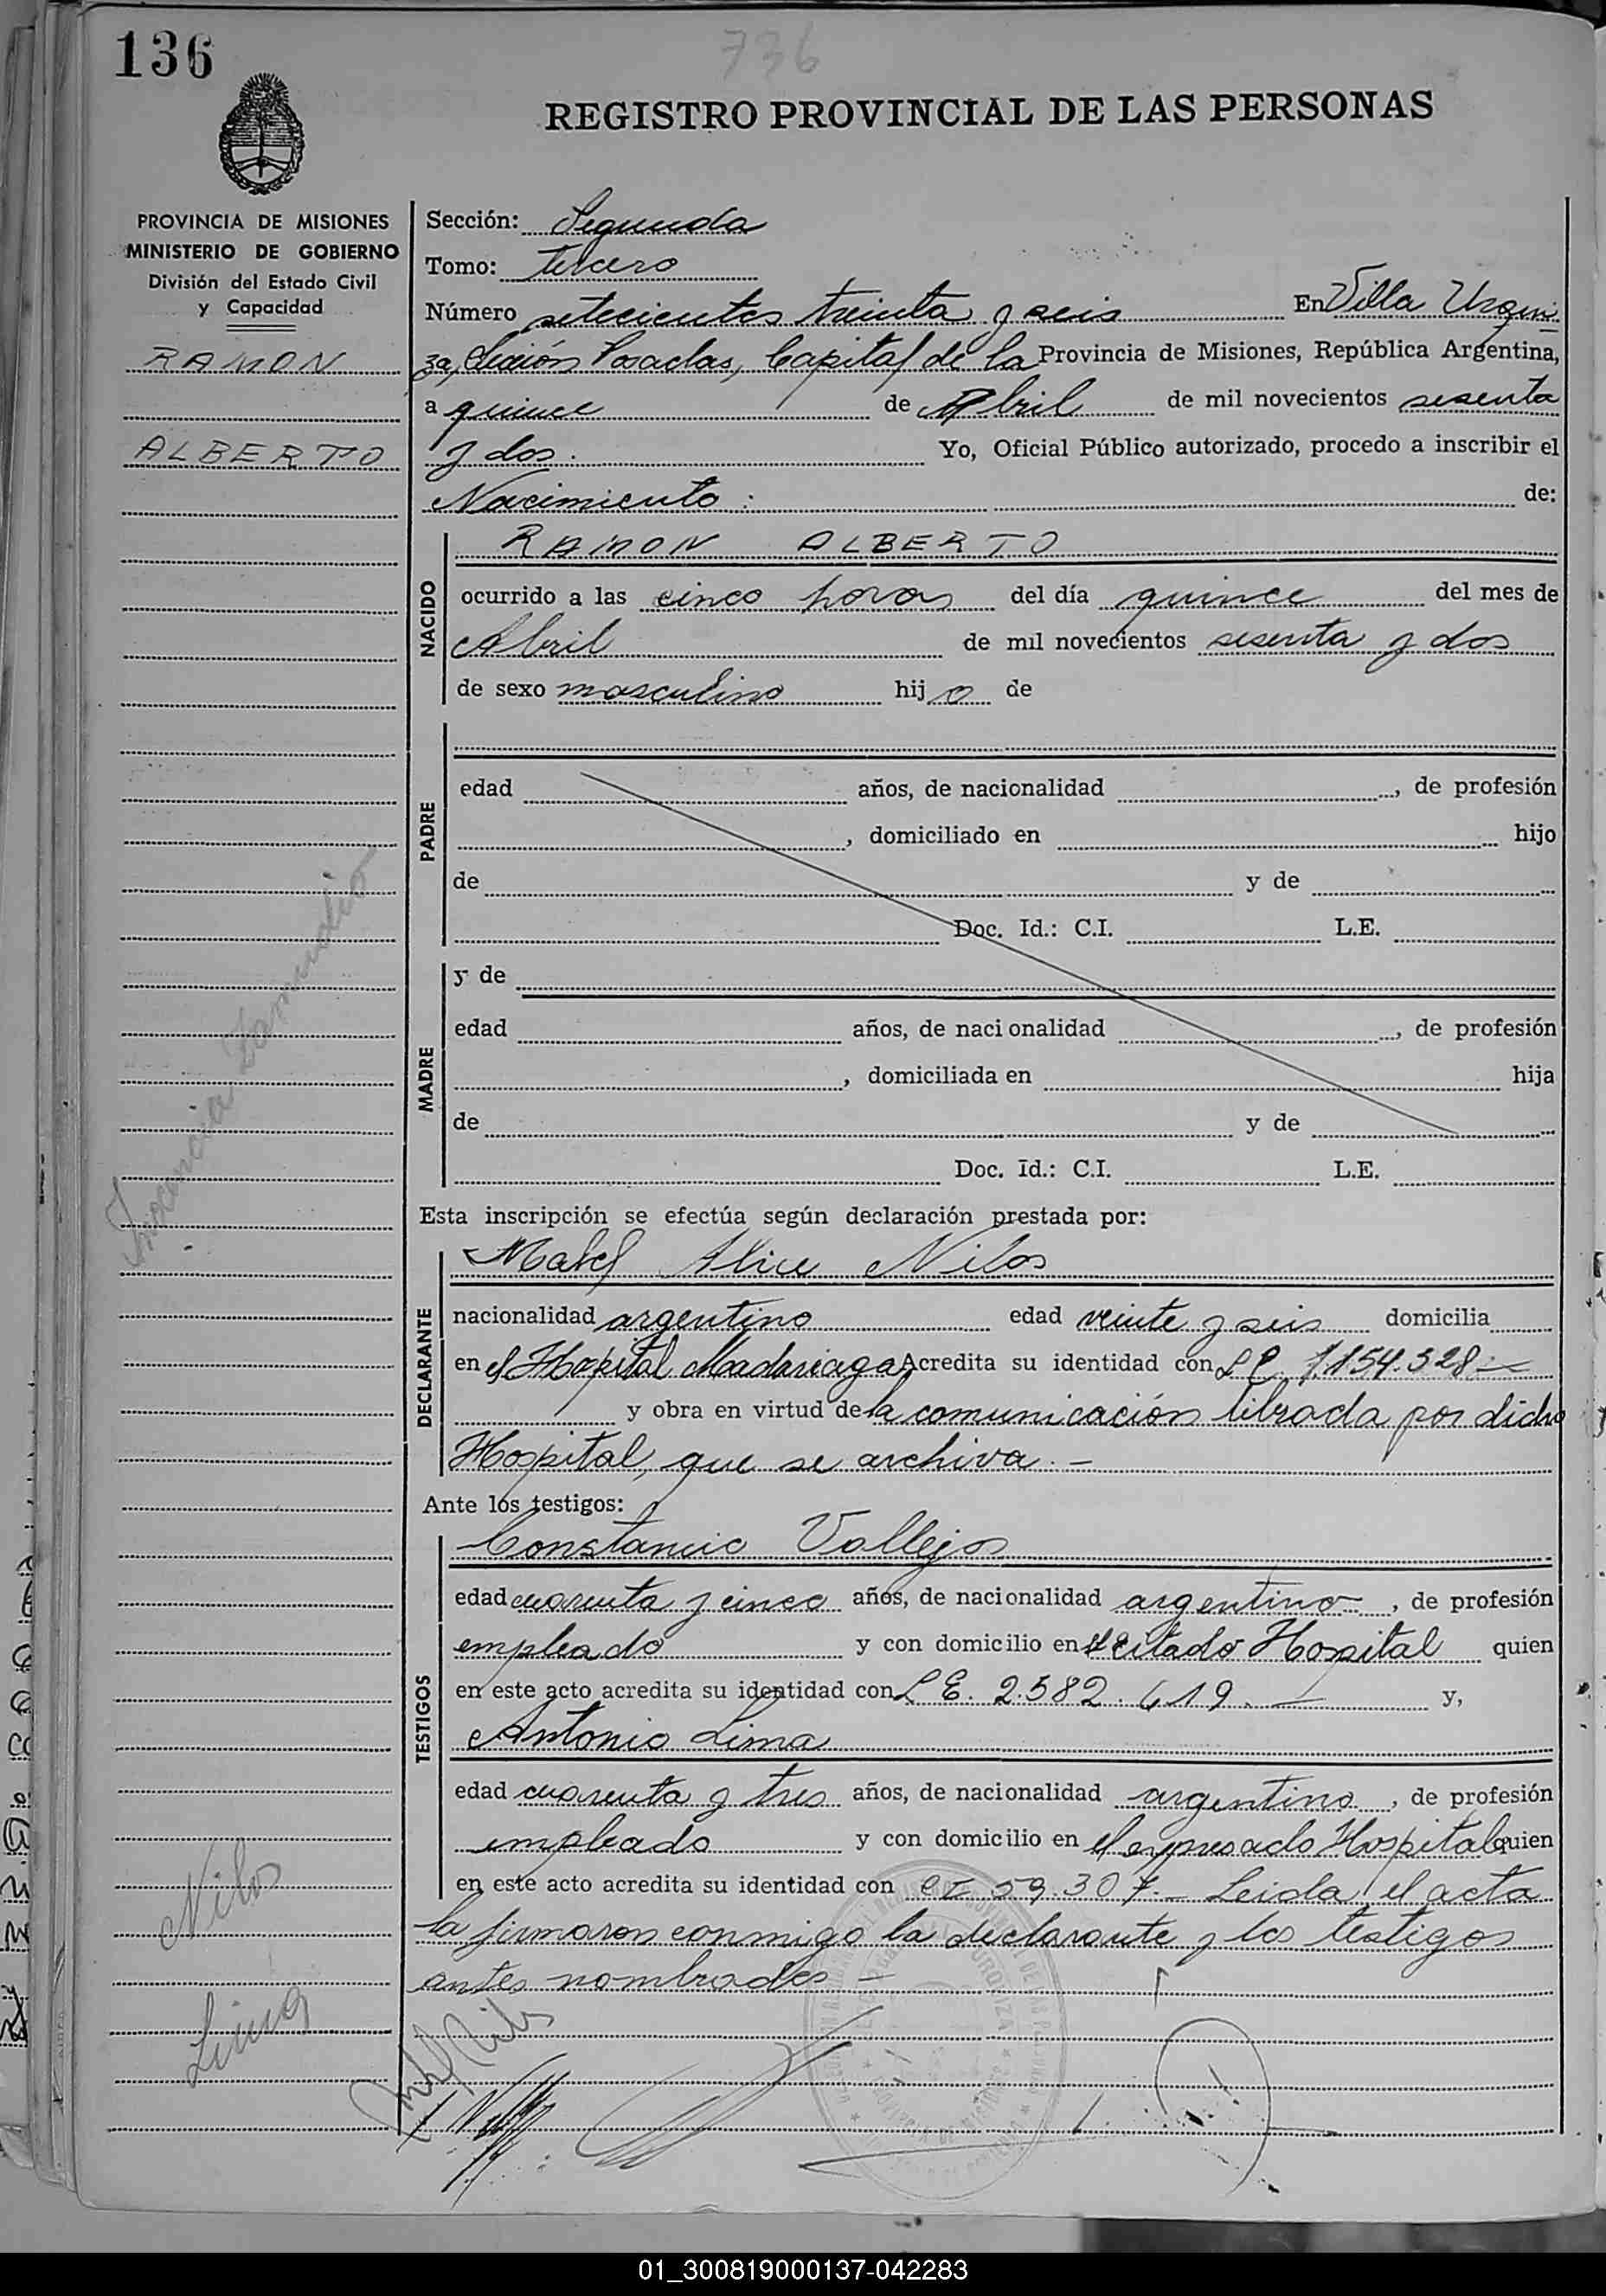 136
736
REGISTRO PROVINCIAL DE LAS PERSONAS
PROVINCIA DE MISIONES
MINISTERIO DE GOBIERNO
División del Estado Civil
y Capacidad
RAMON
ALBERTO
Sección: Segunda
Tomo: tercero
Número setecientos treinta y seis En Villa Urqui
za, Sección Posadas, Capital de la Provincia de Misiones, República Argentina,
a quince de Abril de mil novecientos sesenta
y dos. Yo, Oficial Público autorizado, procedo a inscribir el
Nacimiento : de:
NACIDO
RAMON ALBERTO
ocurrido a las cinco horas del día quince del mes de
Abril de mil novecientos sesenta y dos
de sexo masculino hijo de
PADRE
edad años, de nacionalidad , de profesión
, domiciliado en hijo
de y de
Doc. Id.: C.I. L.E.
MADRE
y de
edad años, de nacionalidad , de profesión
, domiciliada en hija
de y de
Doc. Id.: C.I. L.E.
Esta inscripción se efectúa según declaración prestada por:
DECLARANTE
Mabel Alice Nilos
nacionalidad argentino edad veinte y seis domicilia
en el Hospital Madariaga Acredita su identidad con 1.154.328
y obra en virtud de la comunicación librada por dicho
Hospital, que se archiva. -
Ante los testigos:
TESTIGOS
Constancio Vallejos
edad cuarenta y cinco años, de nacionalidad argentino , de profesión
empleado y con domicilio en el citado Hospital quien
en este acto acredita su identidad con L E. 2.582.619. - y,
Antonio Lima
edad cuarenta y tres años, de nacionalidad argentino , de profesión
empleado y con domicilio en el expresado Hospital quien
en este acto acredita su identidad con CI 59.307.- Leida el acta
la firmaron conmigo la declarante y los testigos
antes nombrados -
Nilos
Lima
01_300819000137-042283